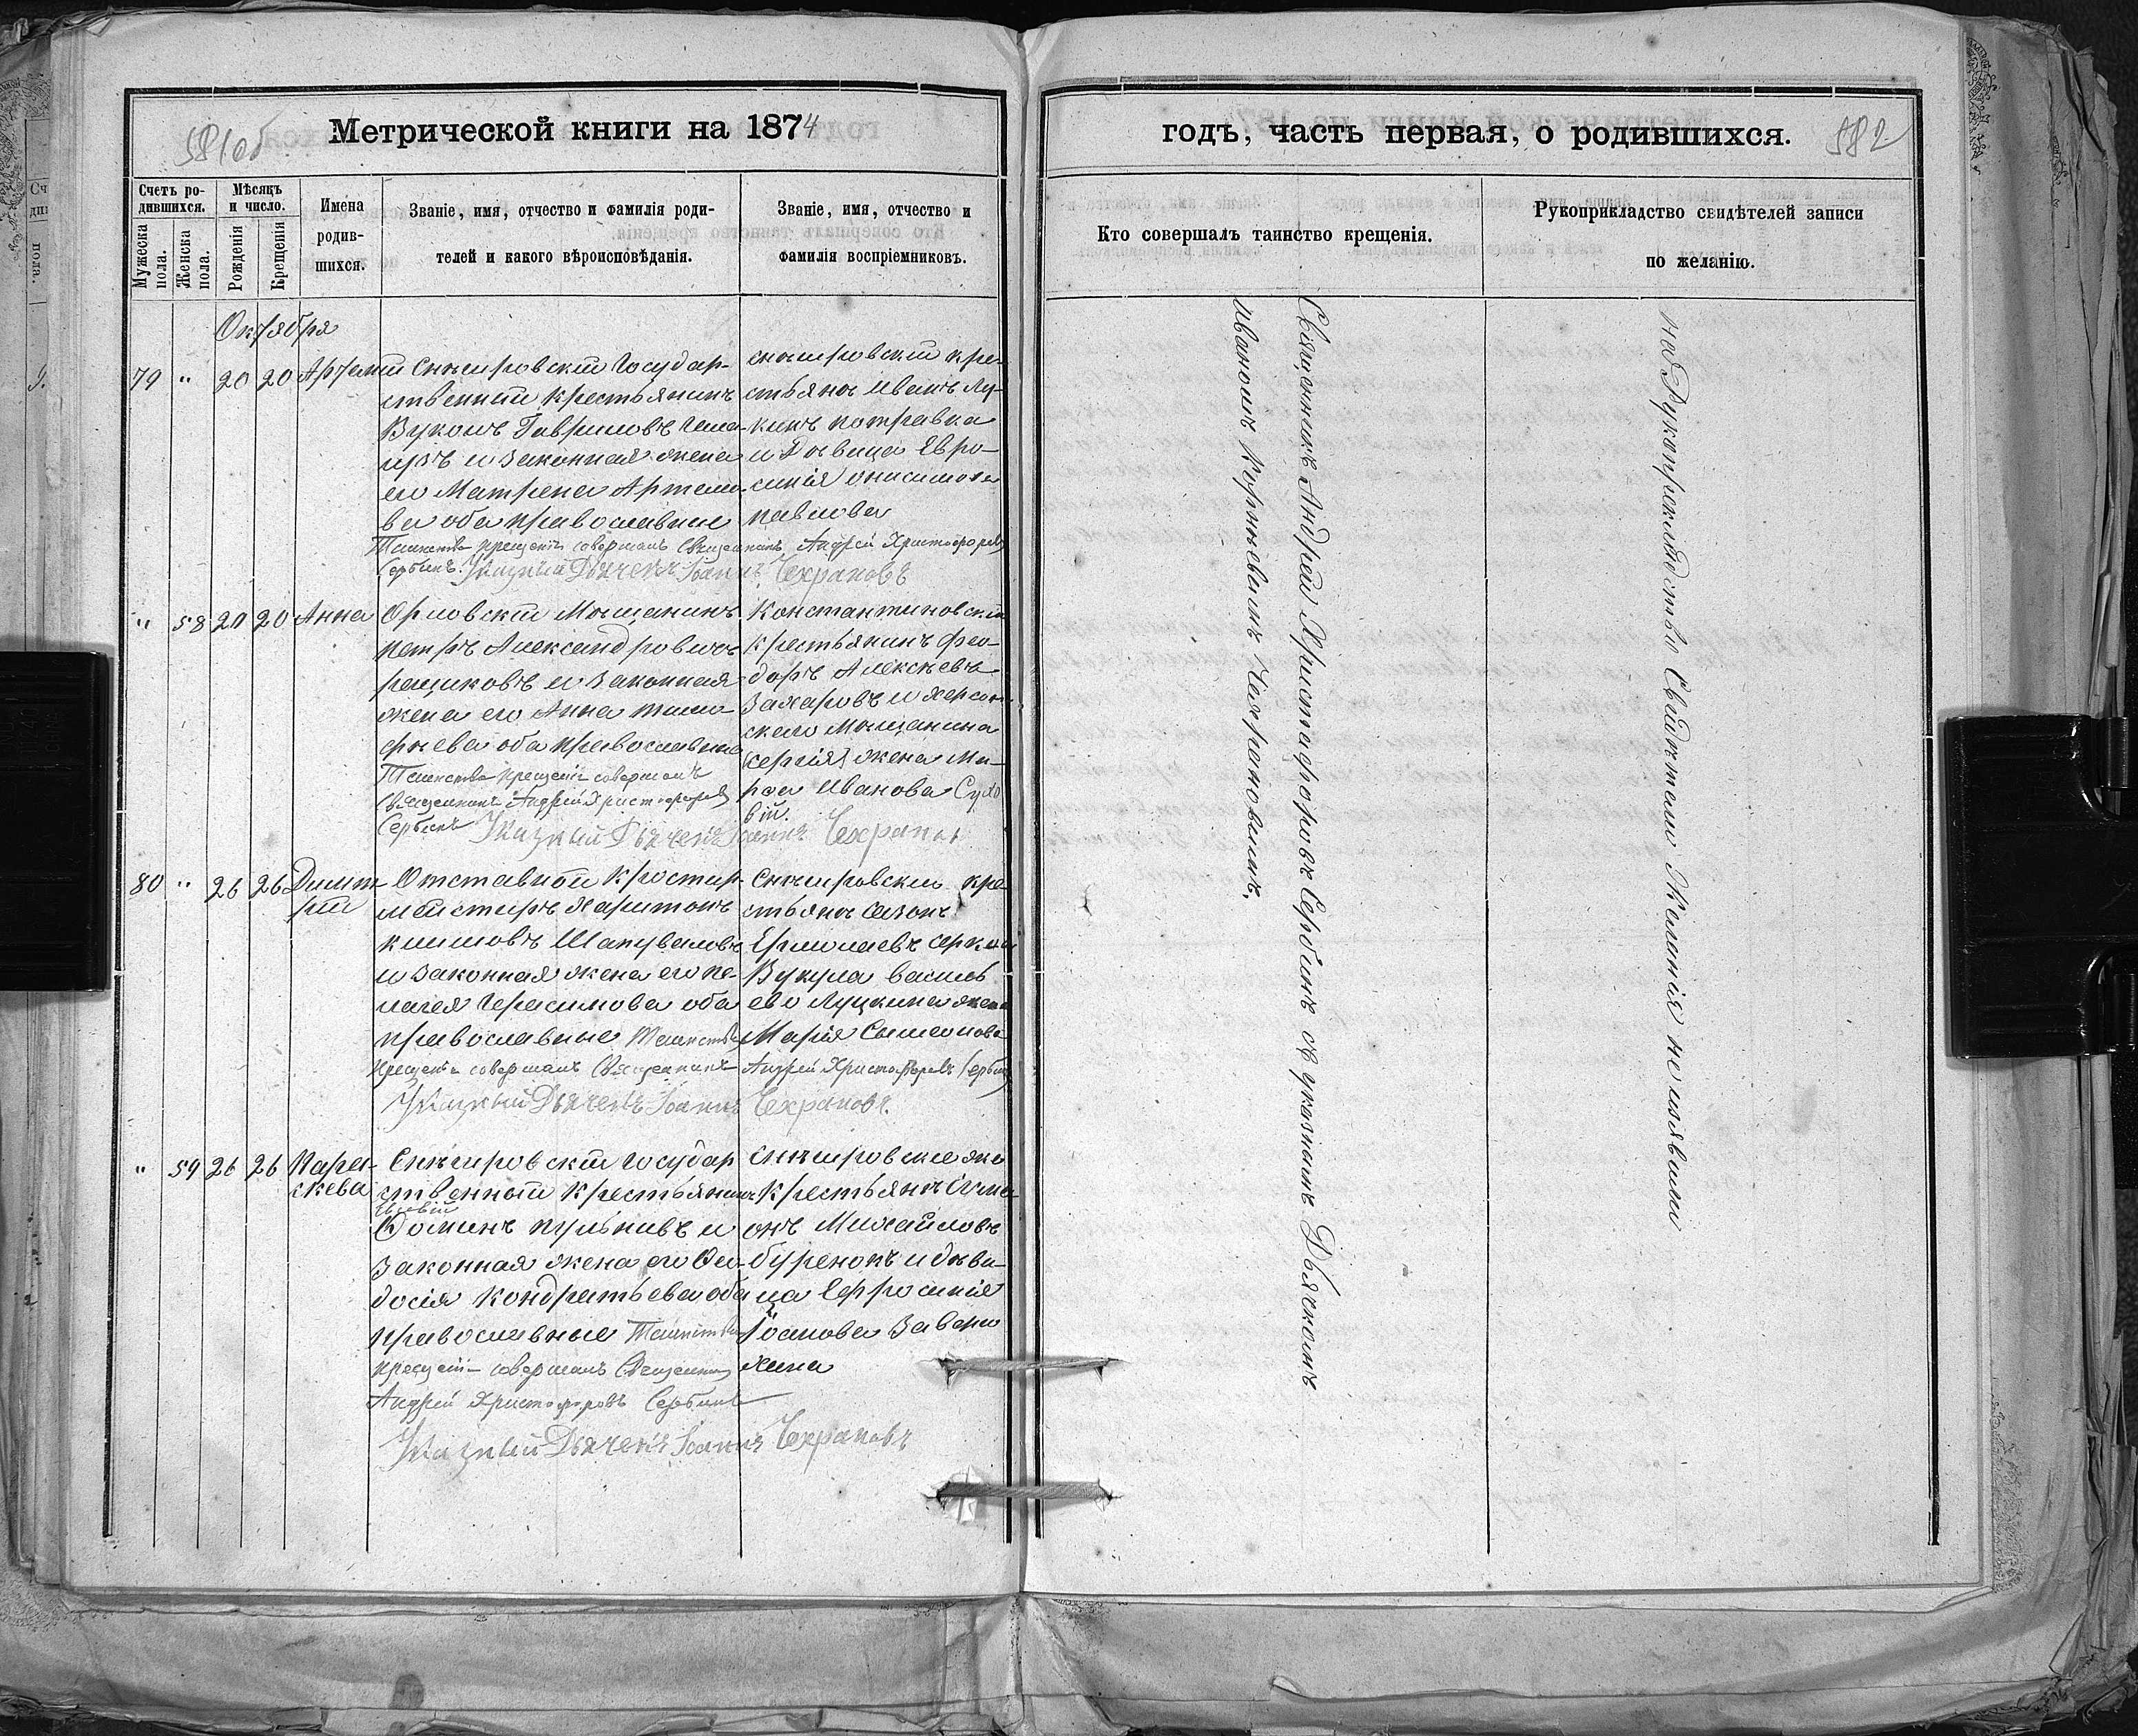 581об
Метрической книги на 1874
годъ, часть первая, о родившихся.
582
Счетъ ро-
дившихся.
Мѣсяцъ
и число.
Мужеска
пола.
Женска
пола.
Рожденія
Крещенія
Имена
родив-
шихся.
Званіе, имя, отчество и фамилія роди-
телей и какого вѣроисповѣданія.
Званіе, имя, отчество и
фамилія воспріемниковъ.
Кто совершалъ таинство крещенія.
Рукоприкладство свидѣтелей записи
по желанію.
Октября
79 " 20 20 Артемій
Снѣгировскій Государ-
ственный крестьянинъ
Вуколъ Гавриловъ
и законная жена
его Матрена Артемо-
ва оба православные
Таинство крещенія совершалъ Священникъ Андрей Христофоровъ
Сербинъ. Указный Дьячекъ Іоаннъ Чехрановъ
снѣгировский кре-
стьянъ Иванъ Лу-
кинъ потравка
и Дѣвица Евро-
синія онисимова
павлова
" 58 20 20 Анна
Орловскій Мѣщанинъ
петръ Александровъ
и законная
жена его Анна тимо-
фѣева оба православные
Таинство крещенія совершалъ
Священникъ Андрей Христофоровъ
Сербинъ Указный Дьячекъ Іоаннъ Чехрановъ
Константиновскій
крестьянинъ Фео-
доръ Алексѣевъ
Захаровъ и херсон-
скаго Мѣщанина
Сергія жена Ма-
рѳа Иванова
80 " 26 26 Димит-
рій
Отставной
Харитонъ
климовъ Шапуваловъ
и законная жена его пе-
лагея Герасимова оба
православные Таинство
крещенія совершалъ Священникъ Андрей Христофоровъ Сербинъ
Указный Дьячекъ Іоаннъ Чехрановъ.
Снѣгировскій кре-
стьянъ
Ермолаевъ
Вукула василь
ева Луцкина жена
Марія Симеонова
" 59 26 26 Парас-
кева
Снѣгировскій Государ
ственный крестьянинъ
Евсевій
Фоминъ и
законная жена его Фео-
досія Кондратьева оба
православные Таинство
крещенія совершалъ Священникъ
Андрей Христофоровъ Сербинъ
Указный Дьячекъ Іоаннъ Чехрановъ
снѣгировские же
Крестьянъ Симе-
онъ Михайловъ
буренокъ и дѣви-
ца Евфросинія
Іоанова
Священникъ Андрей Христофоровъ Сербинъ съ указнымъ Дьячкомъ
Иваномъ Корнѣевымъ Чехрановымъ.
На Рукоприкладство Свидѣтели Желанія не изявили